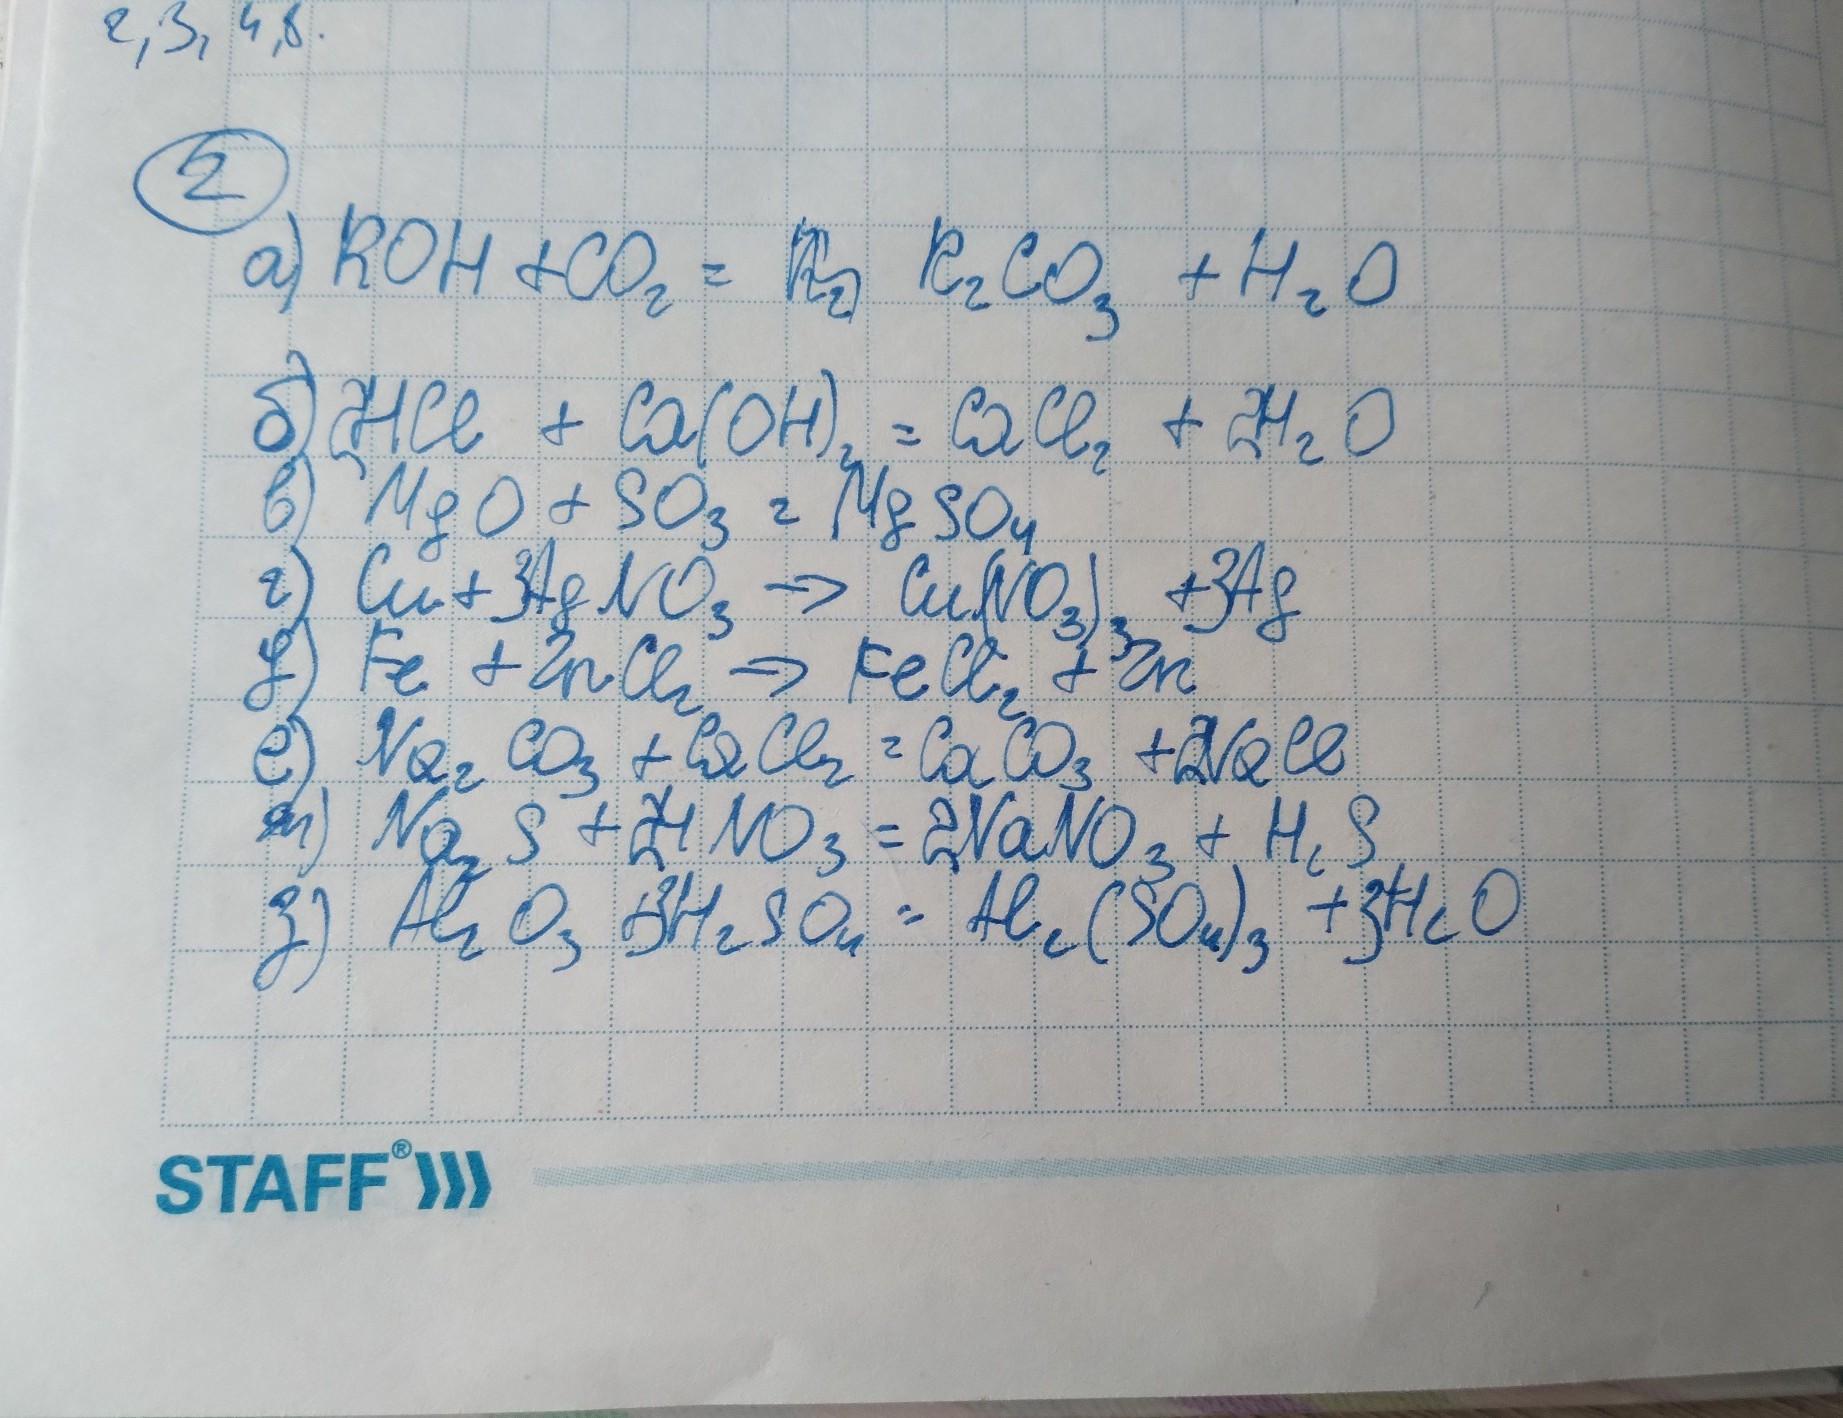 2, 3, 4, 8.
2
а) KOH + CO₂ = K₂ K₂CO₃ + H₂O
б) 2HCl + Ca(OH)₂ = CaCl₂ + 2H₂O
в) MgO + SO₃ = MgSO₄
г) Cu + 3AgNO₃ → Cu(NO₃)₃ + 3Ag
д) Fe + ZnCl₂ → FeCl₂ + Zn
е) Na₂CO₃ + CaCl₂ = CaCO₃ + 2NaCl
ж) Na₂S + 2HNO₃ = 2NaNO₃ + H₂S
з) Al₂O₃ + 3H₂SO₄ = Al₂(SO₄)₃ + 3H₂O
STAFF®